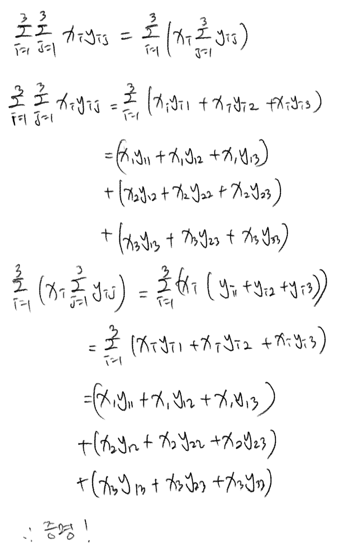 \sum_{i=1}^{3} \sum_{j=1}^{3} x_i y_{ij} = \sum_{i=1}^{3} (x_i \sum_{j=1}^{3} y_{ij})
\sum_{i=1}^{3} \sum_{j=1}^{3} x_i y_{ij} = \sum_{i=1}^{3} (x_i y_{i1} + x_i y_{i2} + x_i y_{i3})
= (x_1 y_{11} + x_1 y_{12} + x_1 y_{13})
+ (x_2 y_{12} + x_2 y_{22} + x_2 y_{23})
+ (x_3 y_{13} + x_3 y_{23} + x_3 y_{33})
\sum_{i=1}^{3} (x_i \sum_{j=1}^{3} y_{ij}) = \sum_{i=1}^{3} (x_i (y_{i1} + y_{i2} + y_{i3}))
= \sum_{i=1}^{3} (x_i y_{i1} + x_i y_{i2} + x_i y_{i3})
= (x_1 y_{11} + x_1 y_{12} + x_1 y_{13})
+ (x_2 y_{12} + x_2 y_{22} + x_2 y_{23})
+ (x_3 y_{13} + x_3 y_{23} + x_3 y_{33})
∴ 증명!